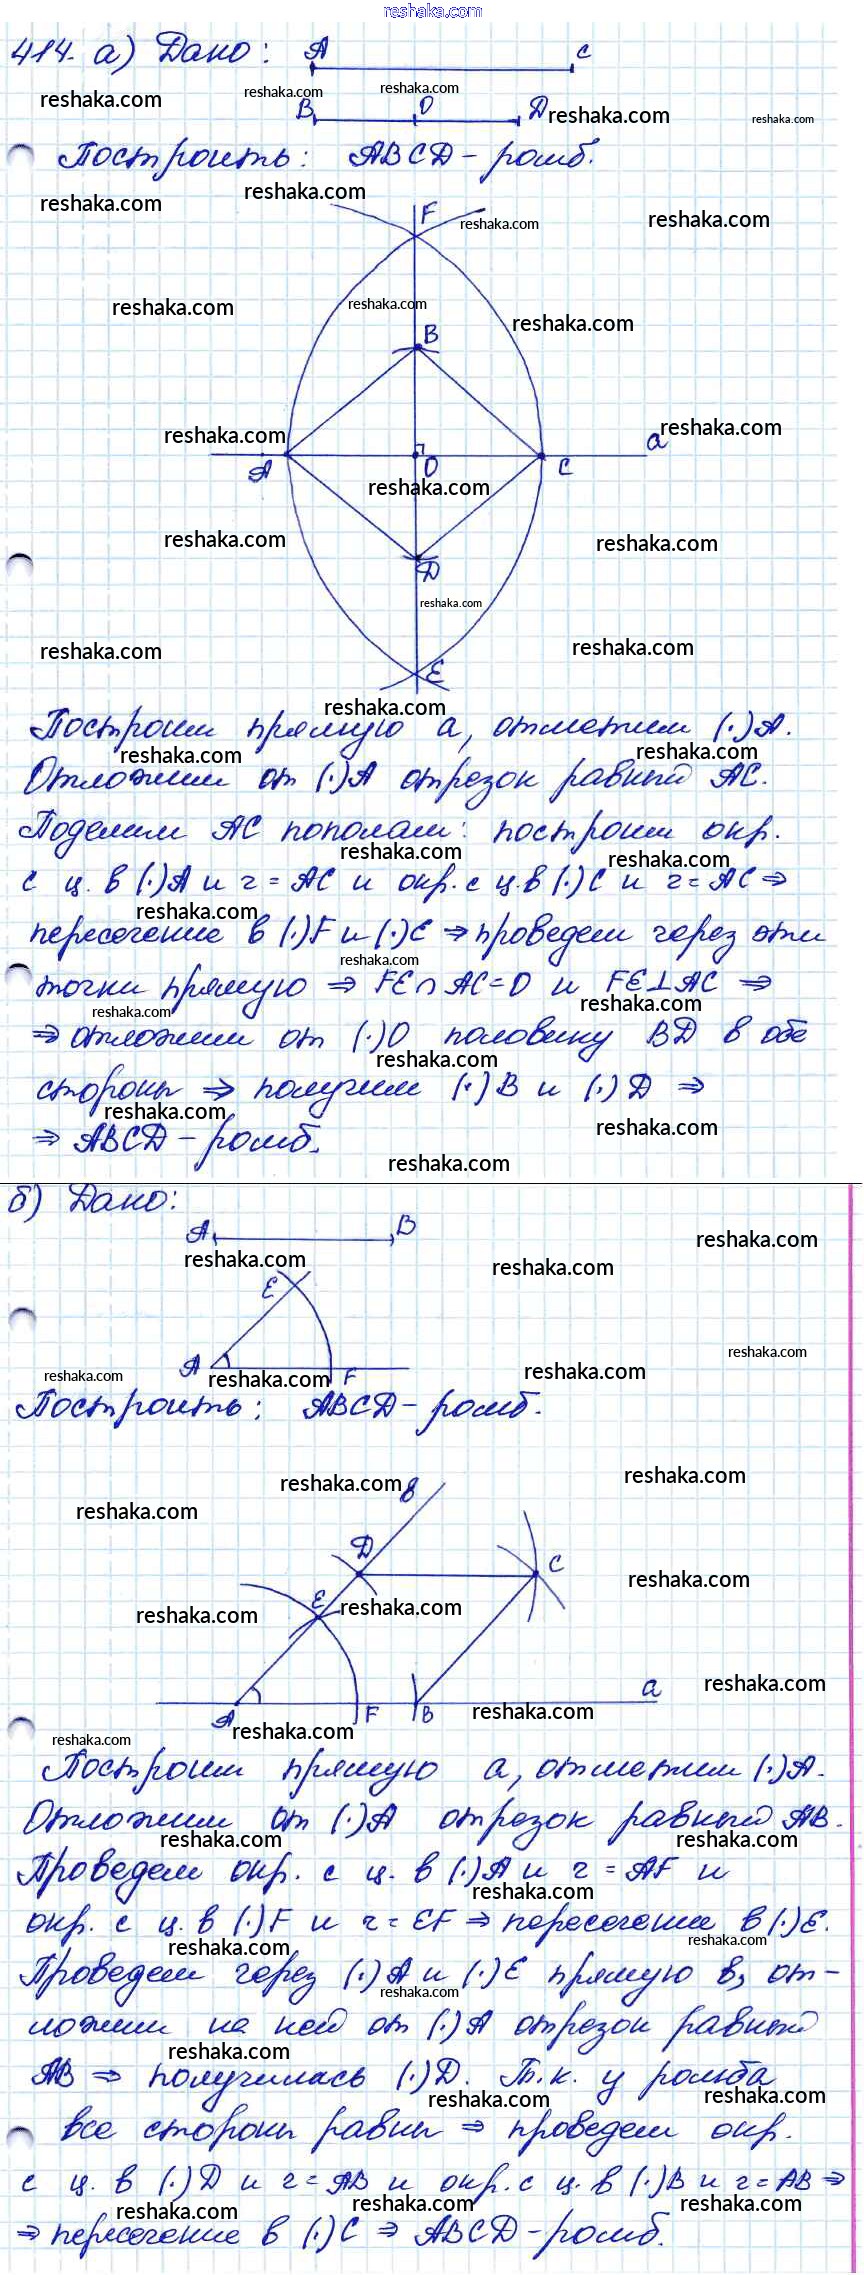 reshaka.com
414. а) Дано: A C
B O D
Построить: ABCD – ромб.
F
B
a
A O C
D
E
Построим прямую a, отметим (·)A.
Отложим от (·)A отрезок равный AC.
Поделим AC пополам: построим окр.
с ц. в (·)A и r = AC и окр. с ц. в (·)C и r = AC ⇒
пересечение в (·)F и (·)E ⇒ проведем через эти
точки прямую ⇒ FE ∩ AC = O и FE ⊥ AC ⇒
⇒ отложим от (·)O половину BD в обе
стороны ⇒ получим (·)B и (·)D ⇒
⇒ ABCD – ромб.
б) Дано:
A B
E
A F
Построить: ABCD – ромб.
в
D C
E
a
A F B
Построим прямую a, отметим (·)A.
Отложим от (·)A отрезок равный AB.
Проведем окр. с ц. в (·)A и r = AF и
окр. с ц. в (·)F и r = EF ⇒ пересечение в (·)E.
Проведем через (·)A и (·)E прямую в, от-
ложим на ней от (·)A отрезок равный
AB ⇒ получилась (·)D. Т.к. у ромба
все стороны равны ⇒ проведем окр.
с ц. в (·)D и r = AB и окр. с ц. в (·)B и r = AB ⇒
⇒ пересечение в (·)C ⇒ ABCD – ромб.